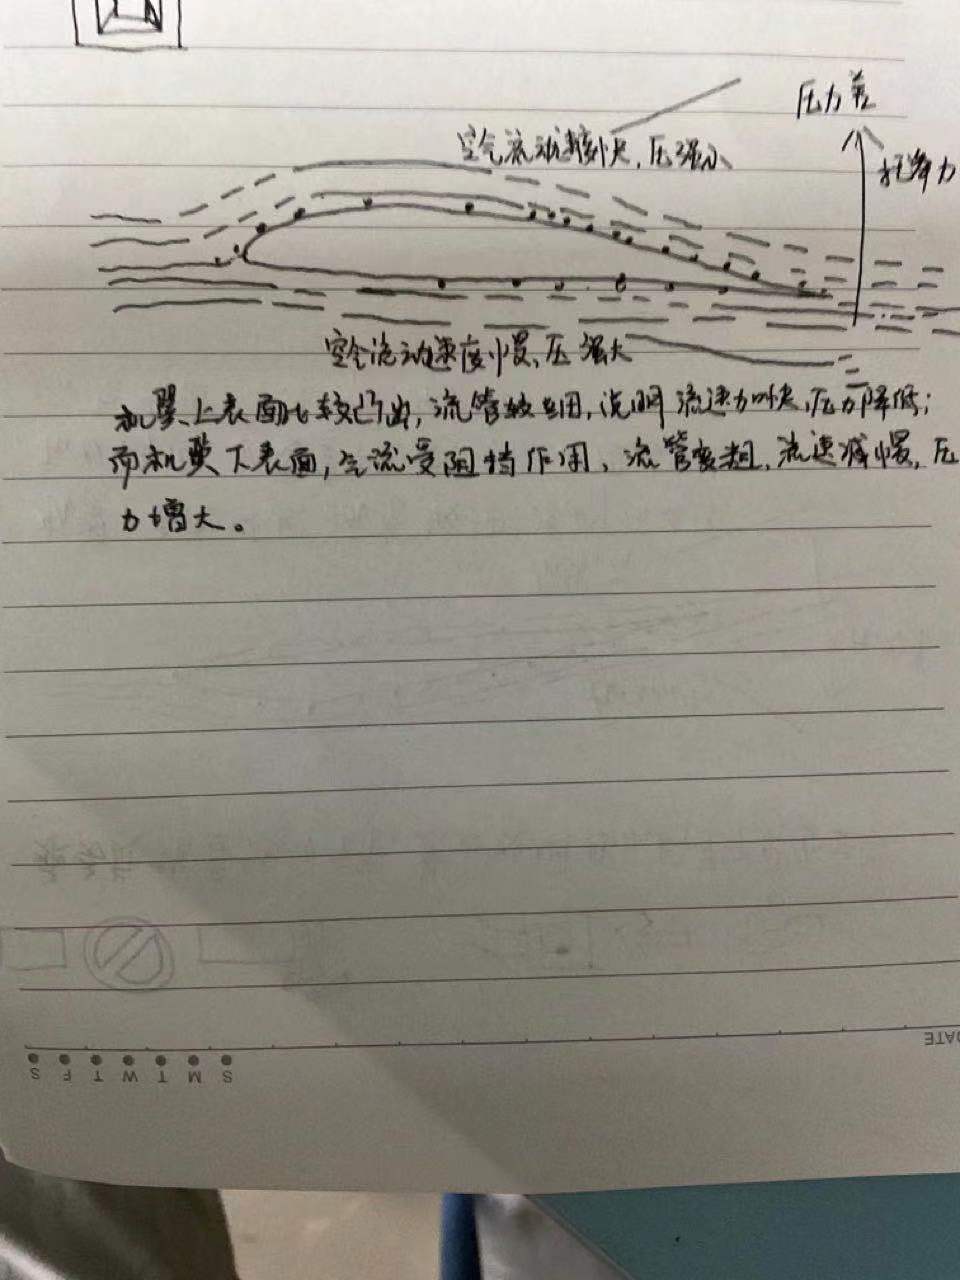 压力差
空气流动速度快，压强小
抬升力
空气流动速度慢、压强大
机翼上表面比较凸出，流管较细，说明流速加快，压力降低；
而机翼下表面，气流受阻挡作用、流管变粗，流速减慢，压
力增大。
DATE
S M T W T F S